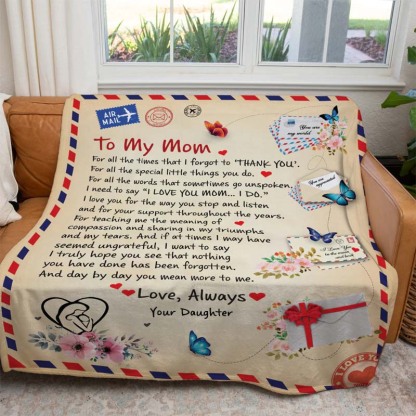 AIR MAIL
To My Mom
For all the times that I forgot to "THANK YOU".
For all the special little things you do,
For all the words that sometimes go unspoken,
I need to say "I LOVE YOU MOM... I DO."
I love you for the way you stop and listen
and for your support throughout the years.
For teaching me the meaning of
compassion and sharing in my triumphs
and my tears. And if at times I may have
seemed ungrateful, I want to say
I truly hope you see that nothing
you have done has been forgotten.
And day by day you mean more to me.
Love, Always
Your Daughter
You are my world
You are appreciated
I Love You to the moon and back
I LOVE YOU